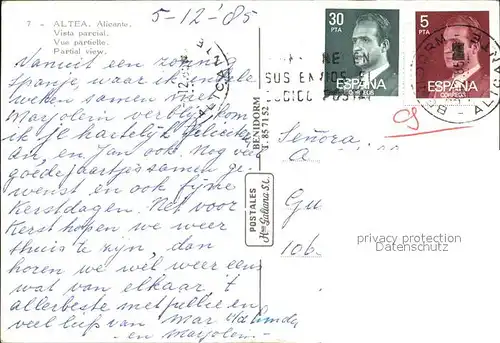 7 - ALTEA. Alicante.
Vista parcial.
Vue partielle.
Partial view.
5-12-'85
Vanuit een zonnig
Spanje, waar ik enkele
weken samen met
Marjolein verblijf, kom
ik je hartelijk feliciteren
An, en Jan ook. Nog vele
goede jaartjes samen ge-
wenst en ook fijne
Kerstdagen. Net voor
Kerst hopen, we weer
thuis te zijn, dan
horen we wel weer eens
wat van elkaar, 't
allerbeste met jullie en
veel liefs van Mar v/d Linde
en Marjolein.
BENIDORM
T. 85 71 52
POSTALES
Hno Galiana S.L.
30
PTA
ESPAÑA
CORREOS
5
PTA
ESPAÑA
CORREOS
SUS ENVIOS
CODIGO POSTAL
ALICANTE
Señora
A
Gu
106
privacy protection
Datenschutz